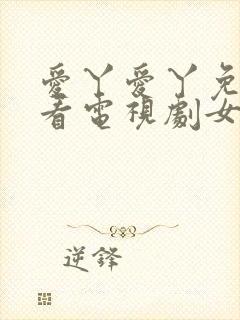 愛丫愛丫免
看電視劇女
逆鋒